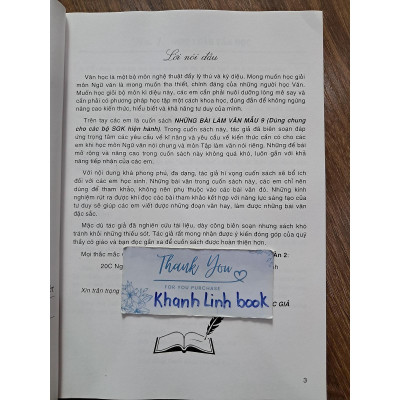 Lời nói đầu
Văn học là một bộ môn nghệ thuật đầy lý thú và kỳ diệu. Mong muốn học giỏi
môn Ngữ văn là mong muốn tha thiết, chính đáng của những người học Văn.
Muốn học giỏi bộ môn kì diệu này, các em cần phải nuôi dưỡng lòng mê say và
cần phải có phương pháp học tập một cách khoa học, đúng đắn để không ngừng
nâng cao kiến thức, hiểu biết và khả năng tư duy của mình.
Trên tay các em là cuốn sách NHỮNG BÀI LÀM VĂN MẪU 9 (Dùng chung
cho các bộ SGK hiện hành). Trong cuốn sách này, tác giả đã biên soạn đáp
ứng trọng tâm các yêu cầu về kĩ năng và yêu cầu về kiến thức cần có cho các
em khi học môn Ngữ văn nói chung và môn Tập làm văn nói riêng. Những đề bài
mở rộng và nâng cao trong cuốn sách này không quá khó, luôn gần với khả
năng tiếp nhận của các em.
Với nội dung khá phong phú, đa dạng, tác giả hi vọng cuốn sách sẽ bổ ích
đối với các em học sinh. Những bài văn trong cuốn sách này, các em chỉ nên
dùng để tham khảo, không nên phụ thuộc vào các bài văn đó. Những kinh
nghiệm rút ra được khi đọc các bài tham khảo kết hợp với năng lực sáng tạo của
tư duy sẽ giúp các em viết được những đoạn văn hay, làm được những bài văn
đặc sắc.
Mặc dù tác giả đã nghiên cứu tài liệu, dày công biên soạn nhưng sách khó
tránh khỏi những thiếu sót. Tác giả rất mong nhận được ý kiến đóng góp của quý
thầy cô giáo và bạn đọc gần xa để cuốn sách được hoàn thiện hơn.
Mọi thắc mắc
ÂN 2:
20C
Thank You
FOR YOU PURCHASE
Khanh Linh book
Xin trân trọng
GIẢ
3